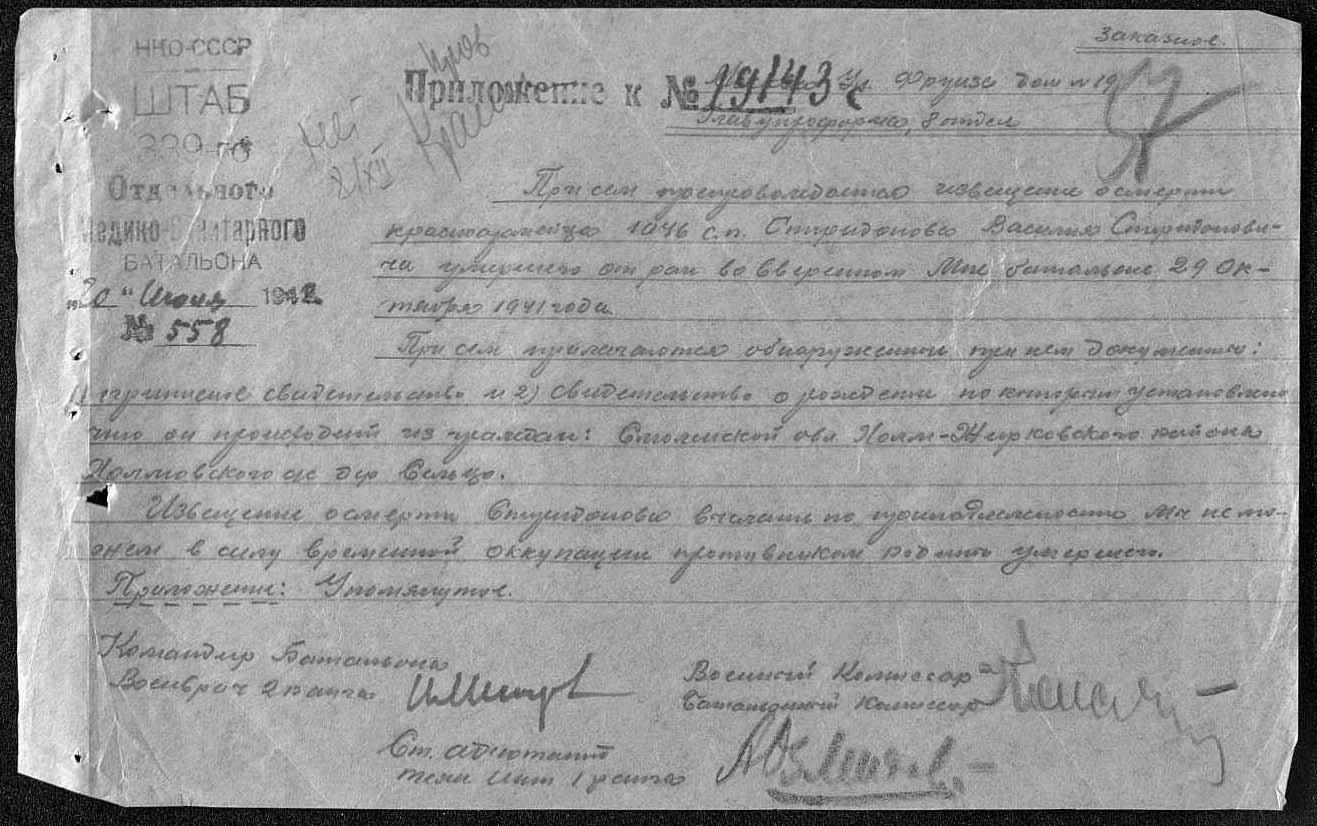 НКО-СССР
ШТАБ
339-го
Отдельного
Медико-Санитарного
БАТАЛЬОНА
"20" Июня 1942
№ 558
Приложение к № 19143с
Заказное.
Ул. Фрунзе дом № 19
Главупроформа, 8 отдел
При сем препровождается извещение о смерти
красноармейца 1046 с.п. Спиридонова Василия Спиридонови-
ча умершего от ран во вверенном мне батальоне 29 Ок-
тября 1941 года.
При сем прилагаются обнаруженные при нем документы:
1) приписное свидетельство и 2) свидетельство о рождении по которым установлено
что он происходит из граждан: Смоленской обл Холм-Жирковского района
Холмовского с/с дер Сельцо.
Извещение о смерти Спиридонова выслать по принадлежности мы не мо-
жем в силу временной оккупации противником родины умершего.
Приложение: Упомянутое.
Командир Батальона
Военврач 2 ранга
Военный Комиссар
Батальонный Комиссар
Ст. адъютант
техн инт 1 ранга